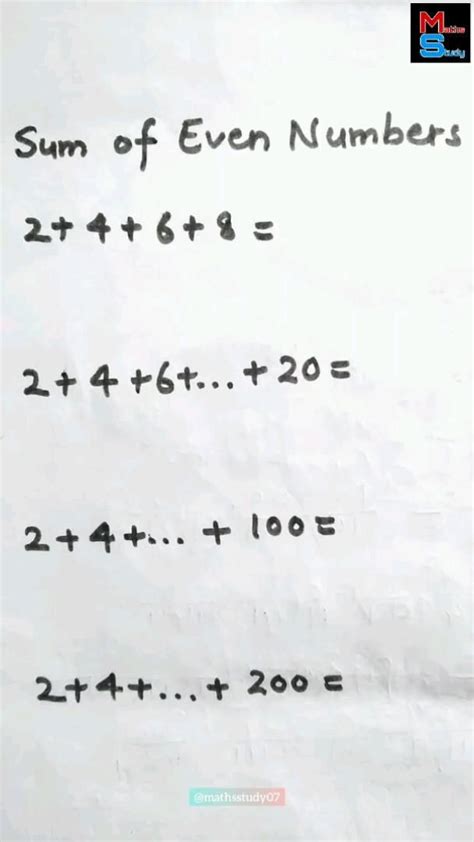 Maths
Study
Sum of Even Numbers
2+4+6+8=
2+4+6+...+20=
2+4+...+100=
2+4+...+200=
@mathsstudy07